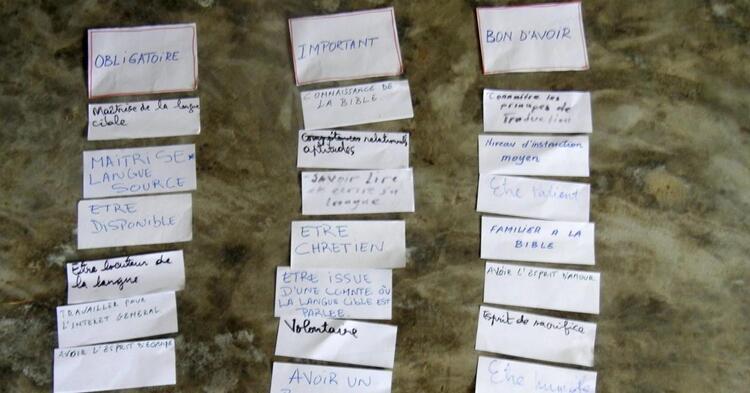 OBLIGATOIRE
Maîtrise de la langue
cible
MAITRISE
LANGUE
SOURCE
ETRE
DISPONIBLE
Etre locuteur de
la langue
TRAVAILLER POUR
L'INTERET GENERAL
AVOIR L'ESPRIT D'EQUIPE
IMPORTANT
CONNAISSANCE DE
LA BIBLE
relationnels
aptitudes
SAVOIR lire
et écrire sa
langue
ETRE
CHRETIEN
ETRE ISSUE
D'UNE COMNTE OÙ
LA LANGUE CIBLE EST
PARLEE.
Volontaire
AVOIR UN
BON D'AVOIR
Connaître les
principes de
Traduction
Niveau d'instruction
moyen
Etre Patient
FAMILIER A LA
BIBLE
AVOIR L'ESPRIT D'AMOUR
Esprit de sacrifice
Etre humble